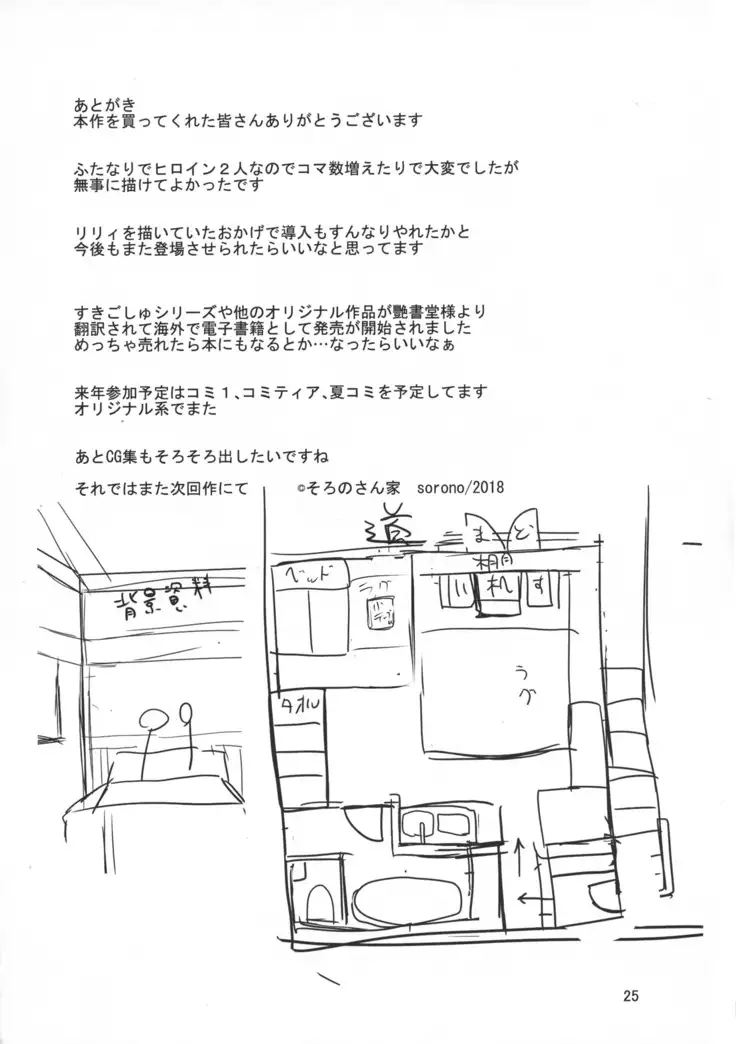 あとがき
本作を買ってくれた皆さんありがとうございます
ふたなりでヒロイン２人なのでコマ数増えたりで大変でしたが
無事に描けてよかったです
リリィを描いていたおかげで導入もすんなりやれたかと
今後もまた登場させられたらいいなと思ってます
すきごしゅシリーズや他のオリジナル作品が艶書堂様より
翻訳されて海外で電子書籍として発売が開始されました
めっちゃ売れたら本にもなるとか…なったらいいなぁ
来年参加予定はコミ１、コミティア、夏コミを予定してます
オリジナル系でまた
あとCG集もそろそろ出したいですね
それではまた次回作にて　©そろのさん家　sorono/2018
道
まど
棚
ベッド
ラグ
机
す
背景資料
うグ
タオル
25